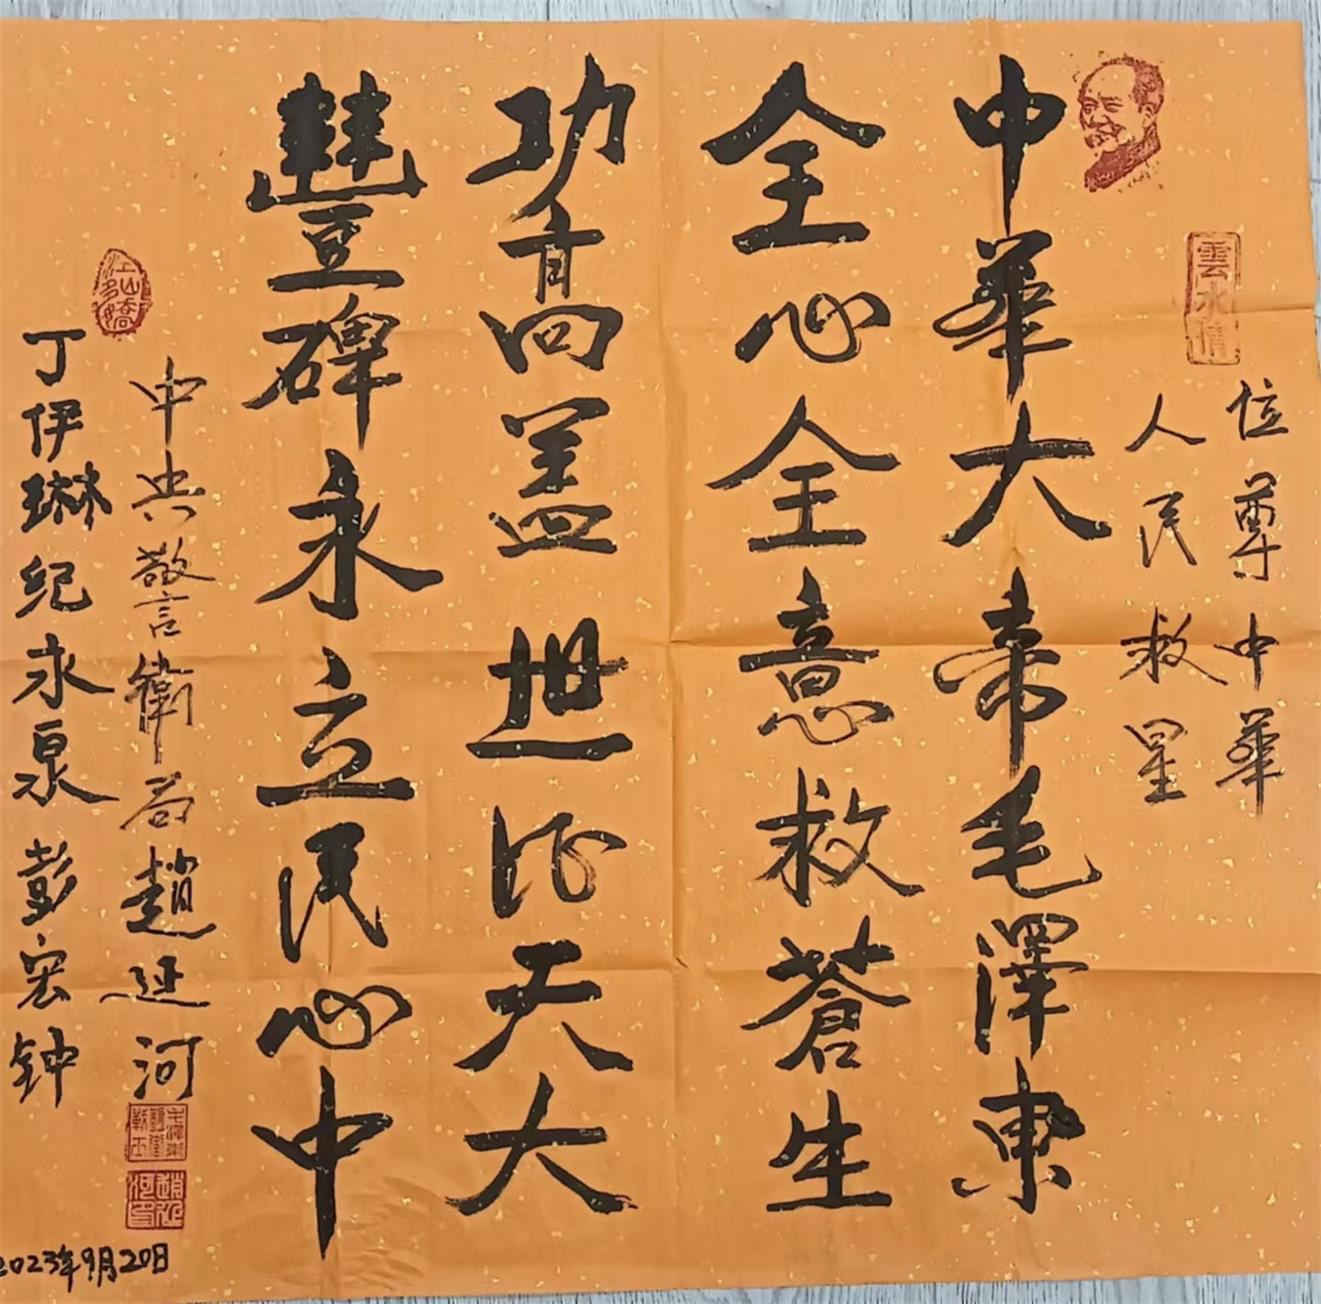 雲水情
位尊中華
人民救星
中華大帝毛澤東
全心全意救蒼生
功高蓋世恩天大
豐碑永立民心中
江山多嬌
中央警衛局趙延河
丁伊琳纪永泉彭宏钟
2023年9月20日